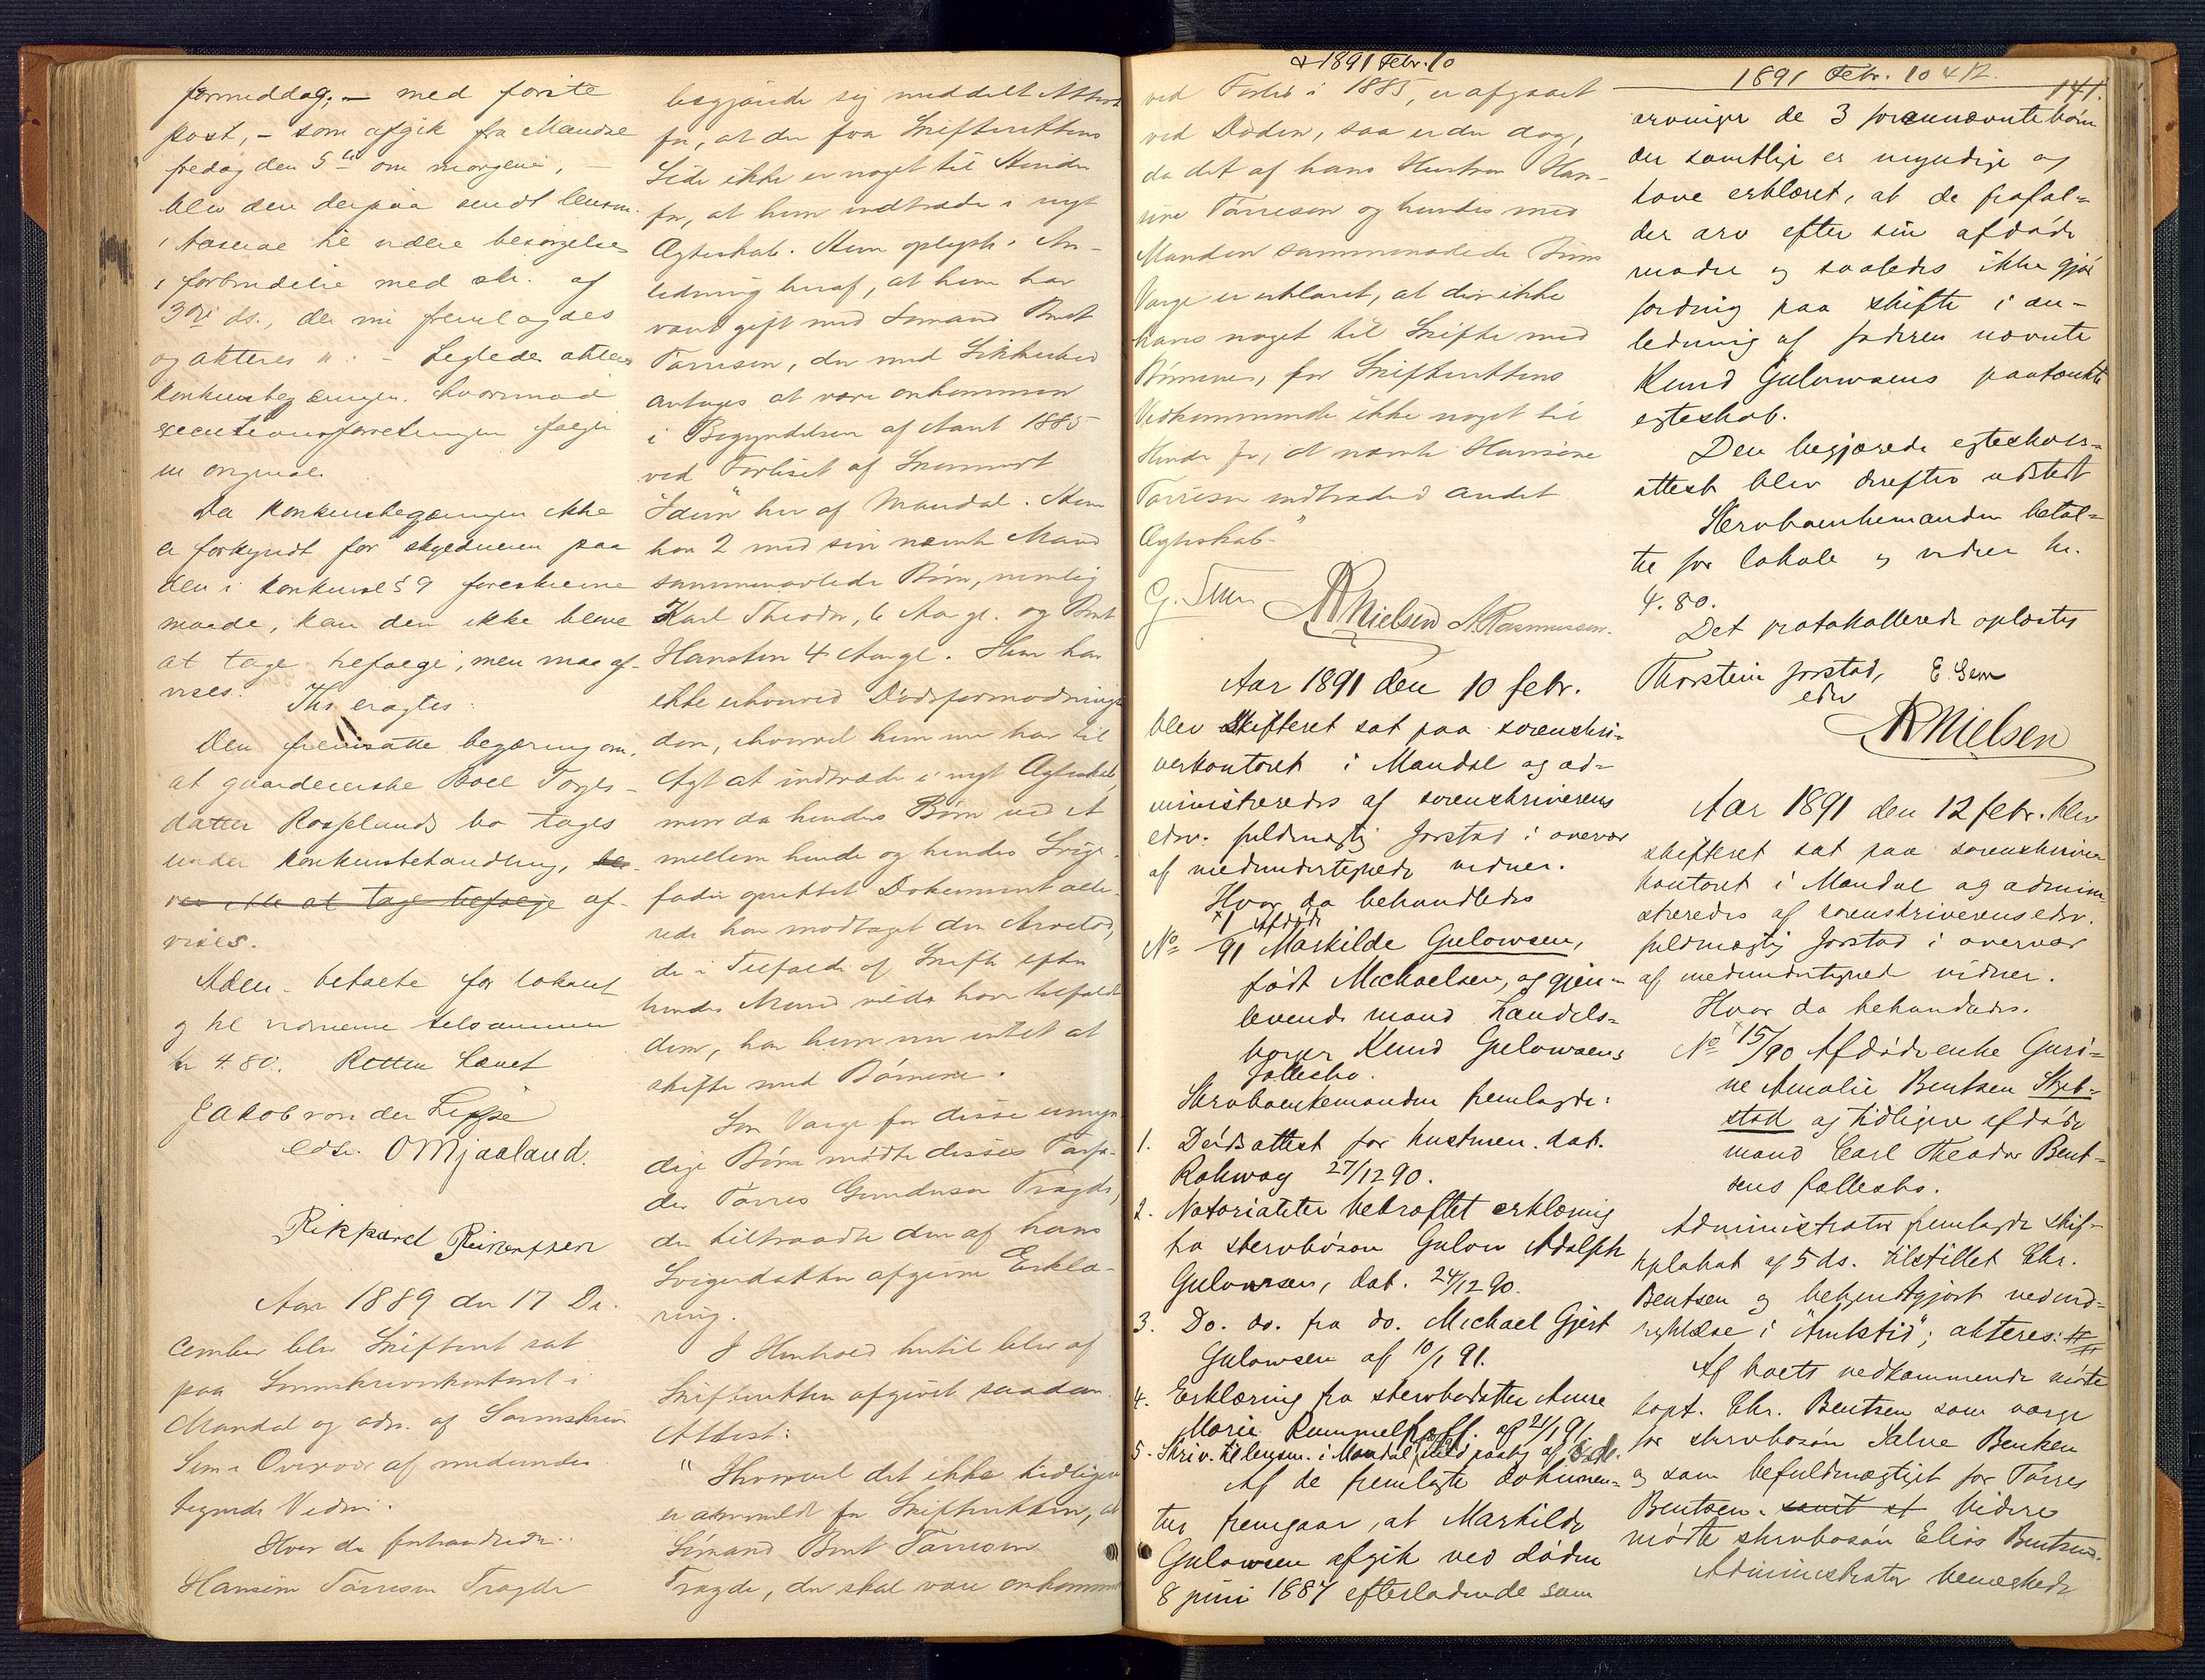 formeddag, – med første
post, – som afgik fra Mandal
fredag den 5te om morgenen, –
blev den derpaa sendt lensm.
i Aaserae til videre besørgelse
i forbindelse med skr. af
3die ds., der nu fremlagdes
og akteres
konkursbegæringen, hvorimod
executionsforretningen følger
in original.
Da konkursbegæringen ikke
er forkyndt for skyldneren paa
den i konkursl § 9 foreskrevne
maade, kan den ikke blive
at tage tilfølge, men maa af-
vises.
Thi eragtes:
Den fremsatte begæring om,
at gaardeierske Boel Torges-
datter Rosselands bo tages
under konkursbehandling, be-
ver ikke at tage tilfølge af-
vises.
betalte for lokalet
og til vidnerne tilsammen
kr 4.80. Retten hævet
Jakob von der Lippe
edsv. O Mjaaland.
Rikhard Reinertsen
Aar 1889 den 17 De-
cember blev Skifteret sat
paa Sorenskriverkontoret i
Mandal og adm. af Sorenskriver
Sem i Overvær af medunder-
tegnede Vidner.
Hvor da forhandledes:
Hansine Tørresen Tregde
begjærede sig meddelt Attest
for, at der fra Skifterettens
Side ikke er noget til Hinder
for, at hun indtræder i nyt
Ægteskab. Hun oplyste i An-
ledning heraf, at hun har
været gift med Sømand Bent
Tørresen, der med Sikkerhed
antages at være omkommen
i Begyndelsen af Aaret 1885
ved Forliset af
her af Mandal. Hun
har 2 med sin nævnte Mand
sammenavlede Børn, nemlig
Karl Theodor, 6 Aar gl. og Bent
Hansten 4 Aar gl. Hun har
ikke erhvervet Dødsformodnings
dom, ihvorvel hun nu har til
Agt at indtræde i nyt Ægteskab,
men da hendes Børn ved et
mellem hende og hendes Sviger-
fader oprettet Dokument alle-
rede har modtaget den Arvelod,
der i Tilfælde af Skifte efter
hendes Mand vilde have tilfaldt
dem, har hun nu intet at
skifte med Børnene.
Som Værge for disse umyn-
dige Børn mødte disses Farfa-
der Tørres Gundersen Tregde,
der tiltraadte den af hans
Svigerdatter afgivne Erklæ-
ring.
I Henhold hertil blev af
Skifteretten afgivet saadan
Attest:
"Ihvorvel det ikke tidligere
er anmeldt for Skifteretten, at
Sømand Bent Tørresen
Tregde, der skal være omkommen
& 1891 Febr. 10
ved Forlis i 1885, er afgaaet
ved Døden, saa er der dog,
da det af hans Hustru Han-
sine Tørresen og hendes med
Manden sammenavlede Børns
Værge er erklæret, at der ikke
haves noget til Skifte med
Børnene, for Skifterettens
Vedkommende ikke noget til
Hinder for, at nævnte Hansine
Tørresen indtræder i andet
Ægteskab."
G. Sem ARNielsen A. Rasmussen.
Aar 1891 den 10 febr.
blev Skifteret sat paa sorenskri-
verkontoret i Mandal og ad-
ministreredes af sorenskriverens
edsv. fuldmægtig Jorstad i overvær
af medundertegnede vidner.
Hvor da behandledes
No 1/91 Afdøde Maskilde Gulowsen,
født Michaelsen, og gjen-
levende mand handels-
borger Knud Gulowsens
fællesbo.
Stervboenkemanden fremlagde:
1. Dødsattest for hustruen. dat.
Rahway 27/12 90.
2. Notorialiter bekræftet erklæring
fra stervbosøn Gulow Adolph
Gulowsen, dat. 24/12 90.
3. Do. do. fra do. Michael Gjert
Gulowsen af 10/1 91.
4. Erklæring fra stervbodatter Anne
Marie Rummelhoff. af 21/1 91
5. Skriv. til lensm. i Mandal med paateg. af s.d.
Af de fremlagte dokumen-
ter fremgaar, at Maskilde
Gulowsen afgik ved døden
8 juni 1887 efterladende som
1891 Febr. 10 & 12. 141.
arvinger de 3 forannævnte børn
der samtlige er myndige og
have erklæret, at de frafal-
der arv efter sin afdøde
moder og saaledes ikke gjør
fordring paa skifte i an-
ledning af faderen nævnte
Knud Gulowsens paatænkte
egteskab.
Den begjærede egteskabs-
attest blev derefter udstedt
Stervboenkemanden betal-
te for lokale og vidner kr.
4.80.
Det protokollerede oplæstes
Thorstein Jorstad, E. Sem
edsv
ARNielsen
Aar 1891 den 12 febr. blev
skifteret sat paa sorenskriver-
kontoret i Mandal og admini-
streredes af sorenskriverens edsv.
fuldmægtig Jorstad i overvær
af medundertegned vidner.
Hvor da behandledes.
No 15/90 Afdøde enke Guri-
ne Amalie Bentsen Skjeb-
stad og tidligere afdøde
mand Carl Theodor Bent-
sens fællesbo.
Administrator fremlagde skif-
teplakat af 5 ds. tilstillet Chr.
Bentsen og bekjendtgjort ved ind-
rykkelse i "Amtstid"; akteres: #
Af boets vedkommende mødte
kapt. Chr. Bentsen som værge
for stervbosøn Salve Bentsen
og som befuldmægtiget for Tørres
Bentsen. samt af Videre
mødte stervbosøn Elias Bentsen.
Administrator bemerkede